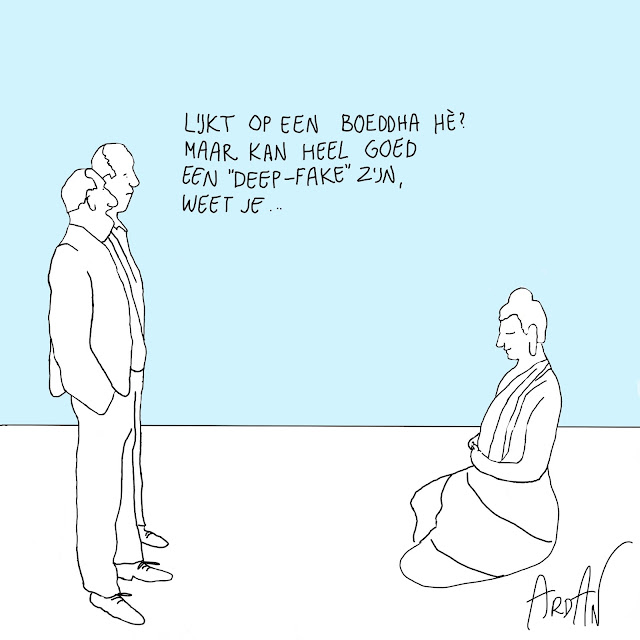 LIJKT OP EEN BOEDDHA HÈ?
MAAR KAN HEEL GOED
EEN "DEEP-FAKE" ZIJN,
WEET JE...
ARDAN